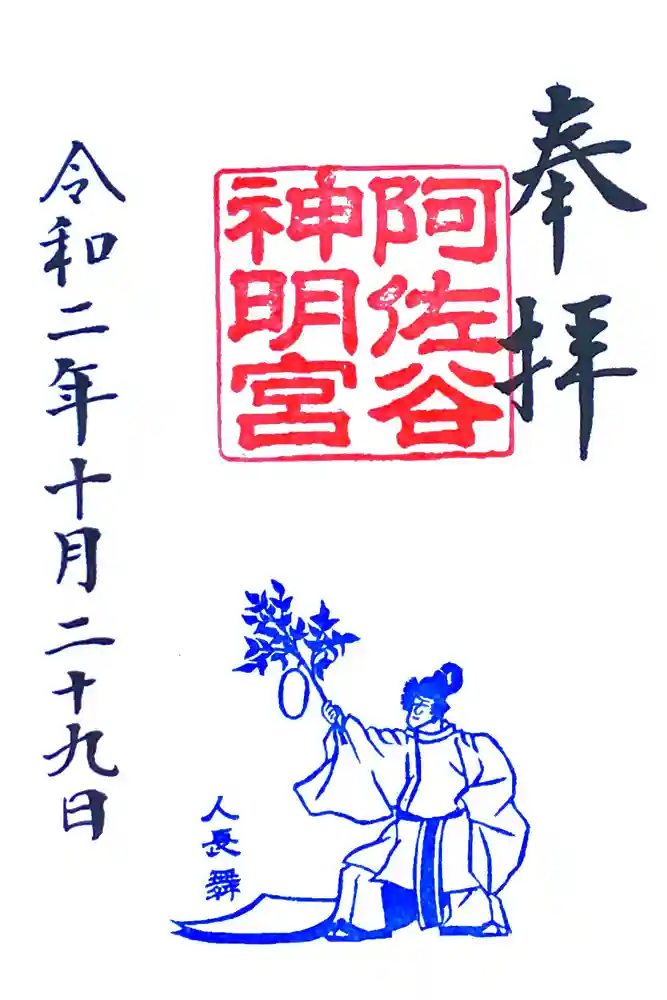 奉拝
阿佐谷
神明宮
令和二年十月二十九日
人長舞